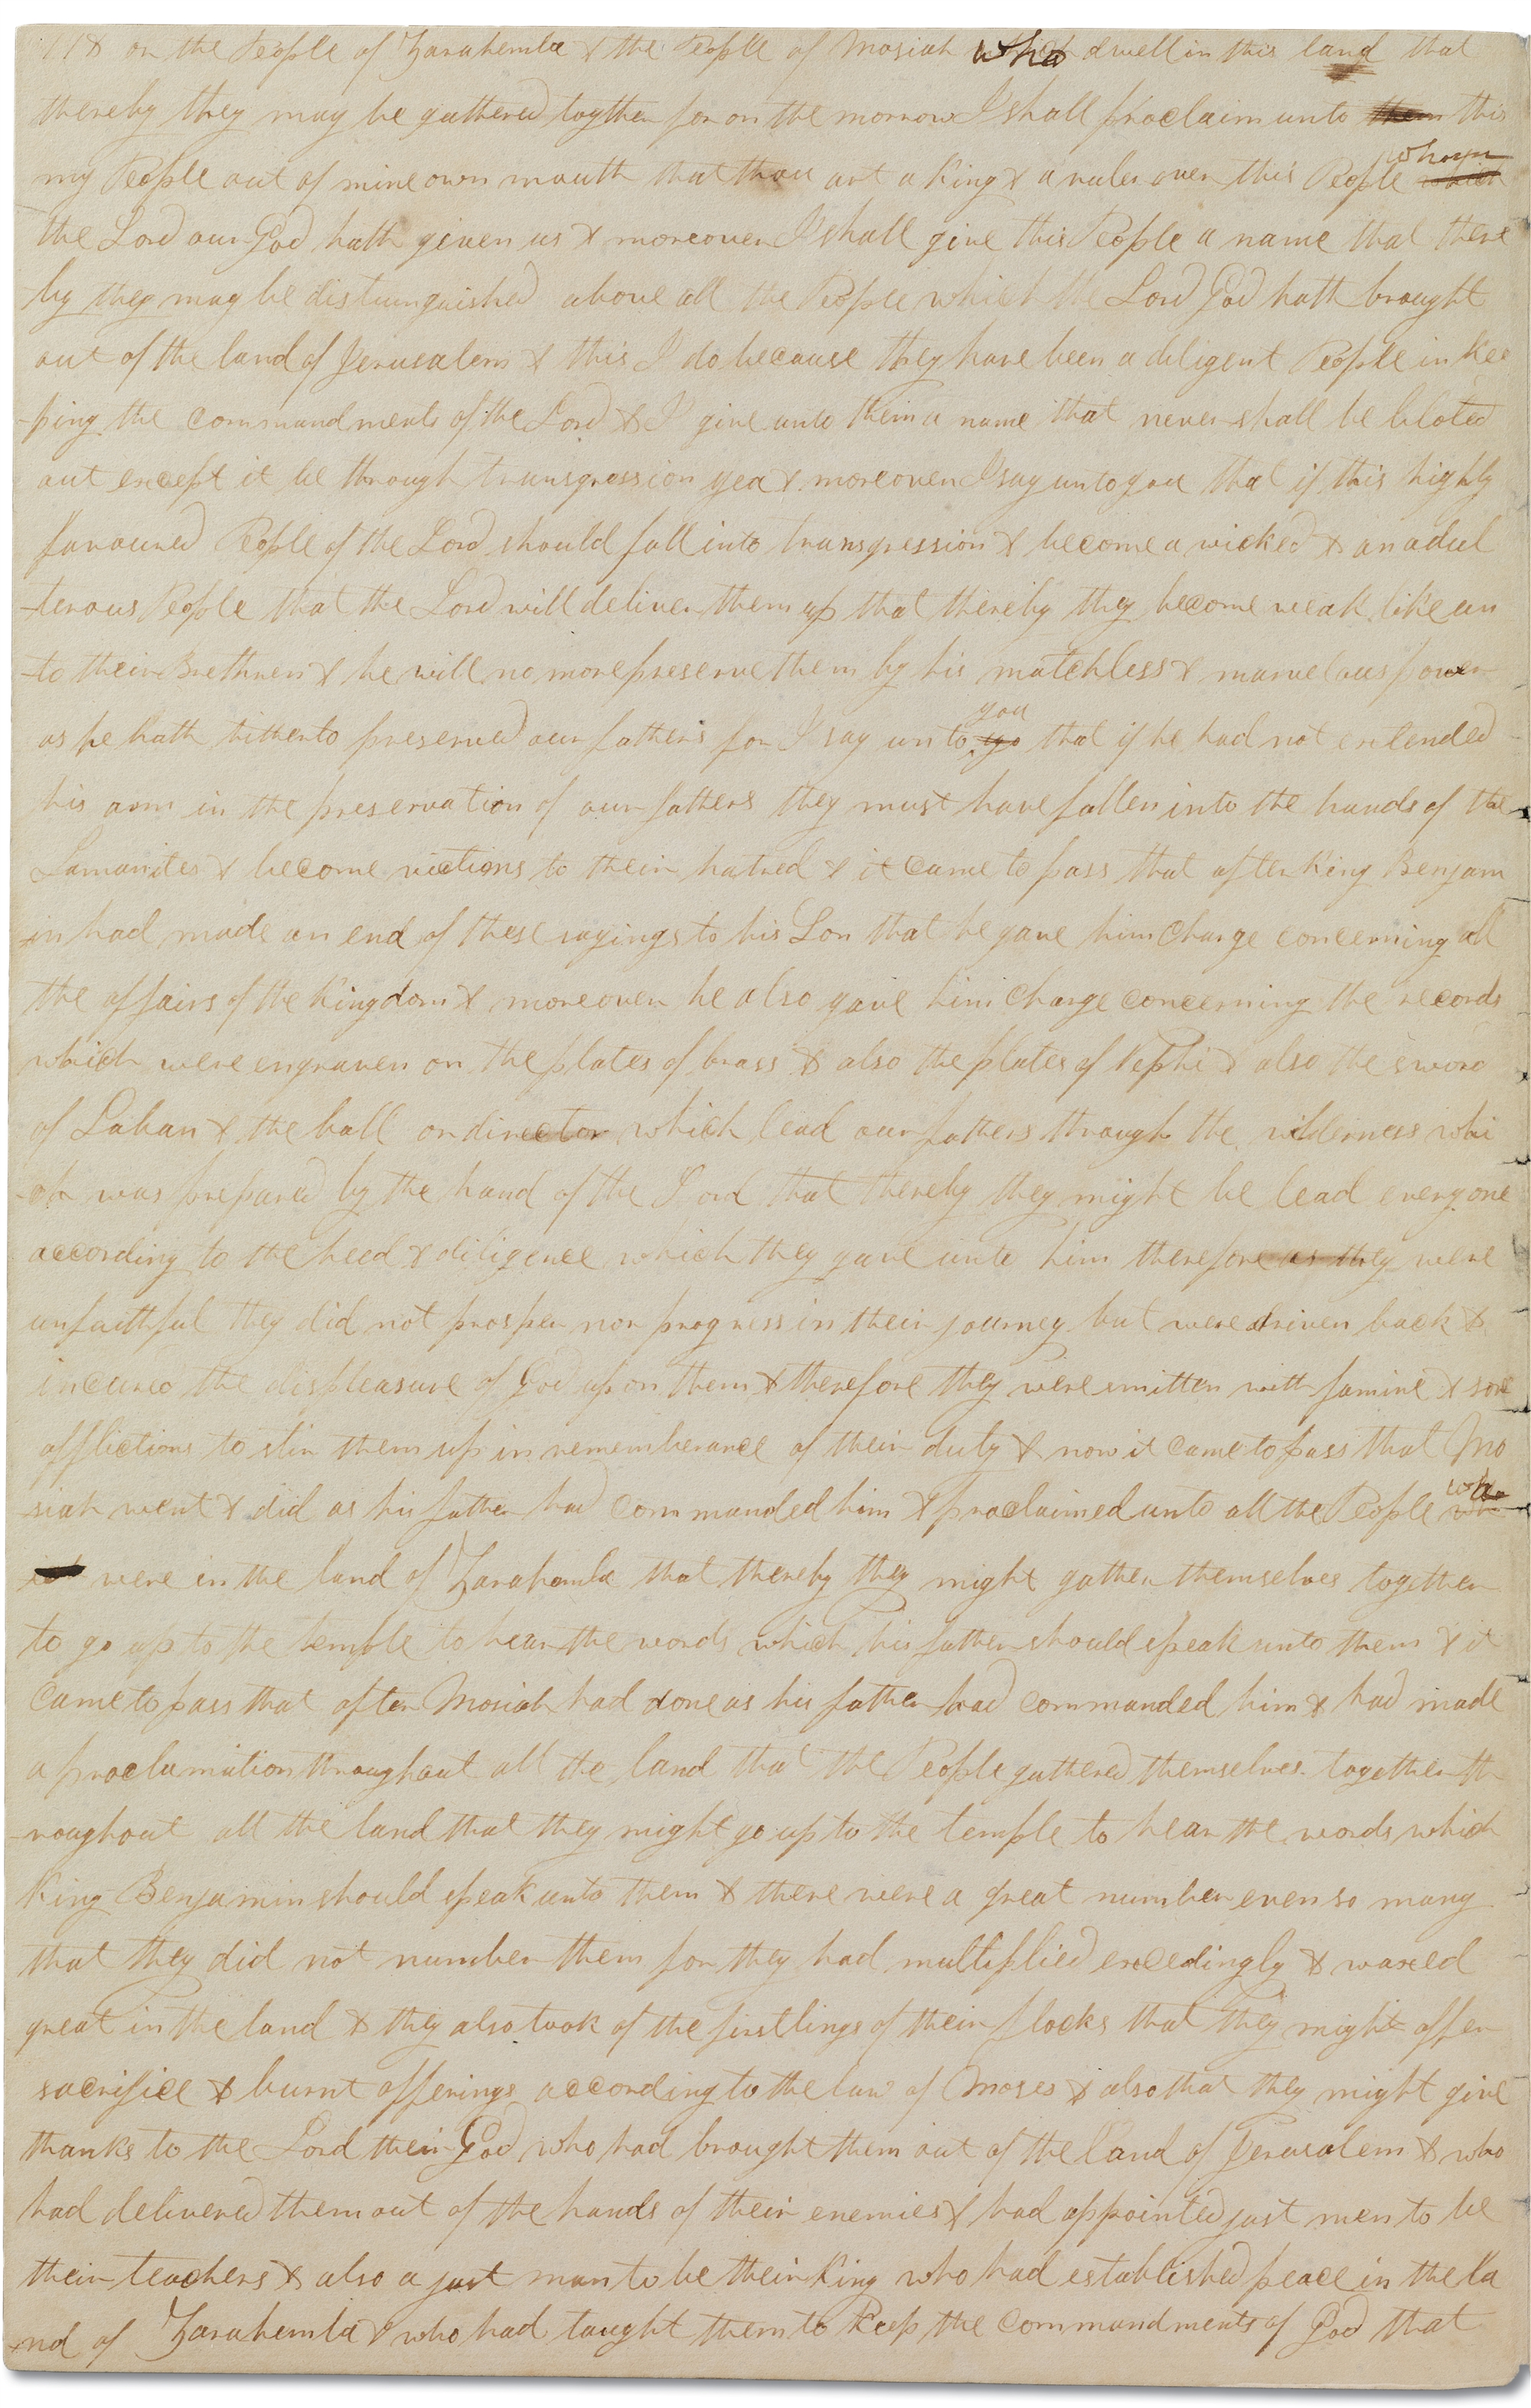 118 on the People of Zarahemla & the People of Mosiah who dwell in this land that
thereby they may be gathered togther for on the morrow I shall proclaim unto them this
my People out of mine own mouth that thou art a King & a ruler over this People which whom
the Lord our God hath given us & moreover I shall give this People a name that there
-by they may be distuinguished above all the People which the Lord God hath brought
out of the land of Jerusalem & this I do because they have been a diligent People in Kee
-ping the commandments of the Lord & I give unto them a name that never shall be bloted
out except it be through transgression yea & moreover I say unto you that if this highly
favoured People of the Lord should fall into transgression & become a wicked & an adul
-terous People that the Lord will deliver them up that thereby they become weak like un
-to their Brethren & he will no more preserve them by his matchless & marvelous power
as he hath hitherto preserved our fathers for I say unto yo you that if he had not extended
his arm in the preservation of our fathers they must have fallen into the hands of the
Lamanites & become victims to their hatred & it came to pass that after King Benjam
-in had made an end of these sayings to his Son that he gave him Charge concerning all
the affairs of the Kingdom & moreover he also gave him Charge concerning the records
which were engraven on the plates of brass & also the plates of Nephi & also the sword
of Laban & the ball or director which lead our fathers through the wilderness whi
-ch was prepared by the hand of the Lord that thereby they might be lead every one
according to the heed & diligence which they gave unto him therefore as they were
unfaithful they did not prosper nor progress in their journey but were driven back &
incured the displeasure of God upon them & therefore they were smitten with famine & sore
afflictions to stir them up in rememberance of their duty & now it came to pass that Mo
-siah went & did as his father had commanded him & proclaimed unto all the People wh who
ich were in the land of Zarahemla that thereby they might gather themselves together
to go up to the temple to hear the words which his father should speak unto them & it
came to pass that after Mosiah had done as his father had commanded him & had made
a proclamation throughout all the land that the People gathered themselves together th
-roughout all the land that they might go up to the temple to hear the words which
King Benjamin should speak unto them & there were a great number even so many
that they did not number them for they had multiplied excedingly & waxed
great in the land & they also took of the firstlings of their flocks that they might offer
sacrifice & burnt offerings according to the law of Moses & also that they might give
thanks to the Lord their God who had brought them out of the land of Jerusalem & who
had delivered them out of the hands of their enemies & had appointed just men to be
their teachers & also a just man to be their King who had established peace in the la
-nd of Zarahemla & who had taught them to Keep the commandments of God that